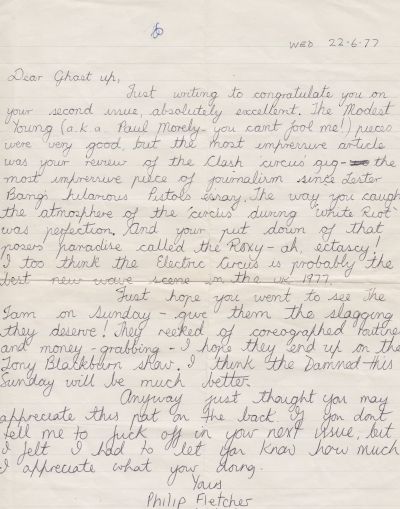 WED 22-6-77
Dear Ghast up,
Just writing to congratulate you on
your second issue, absolutely excellent. The Modest
Young (a.k.a Paul Morely - you cant fool me!) pieces
were very good, but the most impressive article
was your review of the Clash 'circus' gig - the
most impressive piece of journalism since Lester
Bangs hilarious Pistols essay. The way you caught
the atmosphere of the 'circus' during 'White Riot'
was perfection. And your put down of that
posers paradise called the Roxy - ah, ectascy!
I too think the Electric Circus is probably the
best new wave scene in the UK, 1977.
Just hope you went to see The
Jam on Sunday - give them the slagging
they deserve! They reeked of coreographed routines
and money-grabbing - I hope they end up on the
Tony Blackburn show. I think the Damned this
Sunday will be much better.
Anyway just thought you may
appreciate this pat on the back. If you dont
tell me to fuck off in your next issue, but
I felt I had to let you know how much
I appreciate what your doing.
Yours
Philip Fletcher